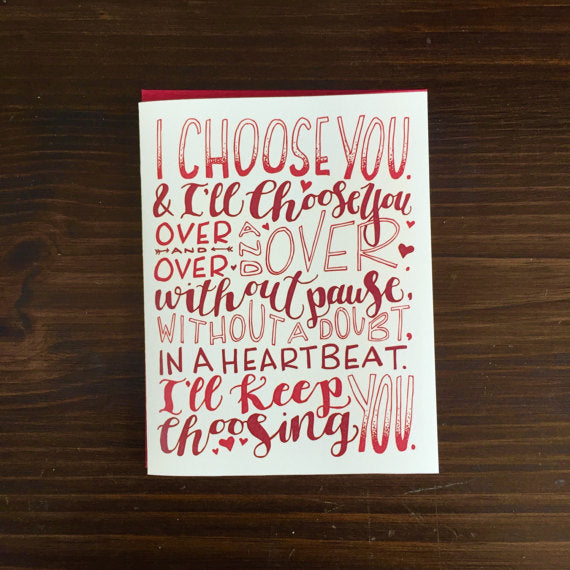 I CHOOSE YOU.
& I'll choose you
OVER AND OVER AND OVER.
without pause,
WITHOUT A DOUBT,
IN A HEARTBEAT.
I'll keep
choosing YOU.